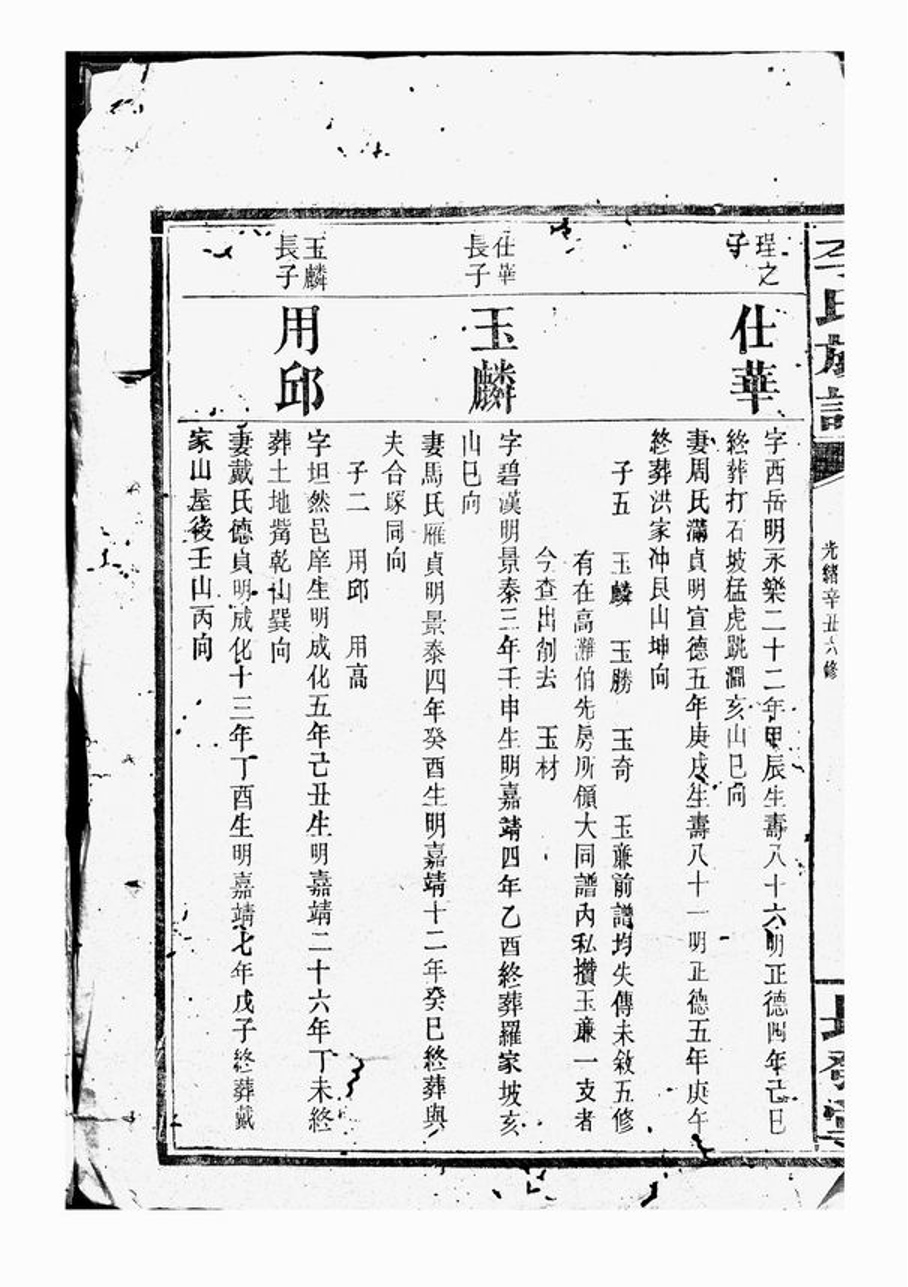 李氏族譜
光緒辛丑六修
珵之
子
仕華
字西岳明永樂二十二年甲辰生壽八十六明正德四年己巳
終葬打石坡猛虎跳澗亥山巳向
妻周氏滿貞明宣德五年庚戌生壽八十一明正德五年庚午
終葬洪家冲艮山坤向
子五 玉麟 玉勝 玉奇 玉亷前譜均失傳未敘五修
有在高灘伯先房所領大同譜內私攢玉亷一支者
今查出削去 玉材
仕華
長子
玉麟
字碧漢明景泰三年壬申生明嘉靖四年乙酉終葬羅家坡亥
山巳向
妻馬氏雁貞明景泰四年癸酉生明嘉靖十二年癸巳終葬與
夫合塚同向
子二 用邱 用高
玉麟
長子
用邱
字坦然邑庠生明成化五年己丑生明嘉靖二十六年丁未終
葬土地觜乾山巽向
妻戴氏德貞明成化十三年丁酉生明嘉靖七年戊子終葬戴
家山屋後壬山丙向